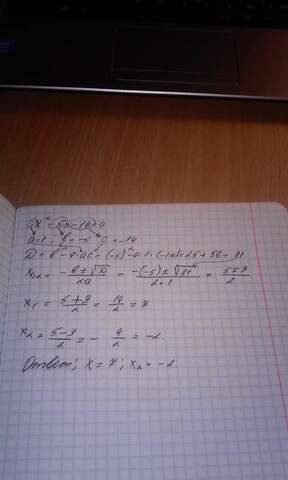 x² - 5x - 14 = 0
a=1; b=-5 c=-14
D = b² - 4ac = (-5)² - 4·1·(-14) = 25 + 56 = 81
x₁,₂ = (-b ± √D)/2a = (-(-5) ± √81)/2·1 = (5 ± 9)/2
x₁ = (5+9)/2 = 14/2 = 7
x₂ = (5-9)/2 = - 4/2 = -2
Ответ: x = 7; x₂ = -2